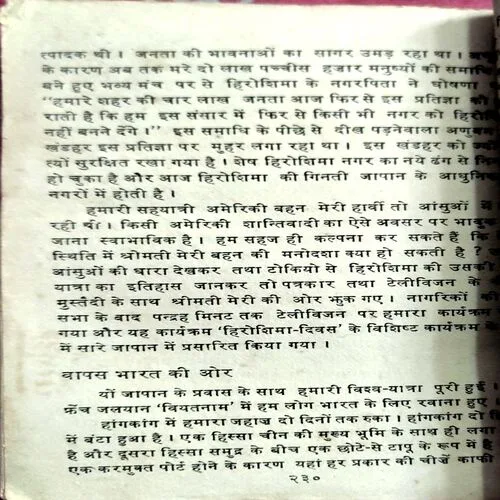 त्पादक थी । जनता की भावनाओं का सागर उमड़ रहा था ।
के कारण अब तक मरे दो लाख पच्चीस हजार मनुष्यों की समाधि
बने हुए भव्य मंच पर से हिरोशिमा के नगरपिता ने घोषणा
“हमारे शहर की चार लाख जनता आज फिर से इस प्रतिज्ञा को
राती है कि हम इस संसार में फिर से किसी भी नगर को हिरो
नहीं बनने देंगे ।” इस समाधि के पीछे से दीख पड़नेवाला अणुबम
खंडहर इस प्रतिज्ञा पर मुहर लगा रहा था । इस खंडहर को ज्यों
त्यों सुरक्षित रखा गया है । शेष हिरोशिमा नगर का नये ढंग से नि
हो चुका है और आज हिरोशिमा की गिनती जापान के आधुनि
नगरों में होती है ।
हमारी सहयात्री अमेरिकी बहन मेरी हार्वी तो आंसुओं में
रही थीं । किसी अमेरिकी शान्तिवादी का ऐसे अवसर पर भावुक
जाना स्वाभाविक है । हम सहज ही कल्पना कर सकते हैं कि
स्थिति में श्रीमती मेरी बहन की मनोदशा क्या हो सकती है ?
आंसुओं की धारा देखकर तथा टोकियो से हिरोशिमा की उसकी
यात्रा का इतिहास जानकर तो पत्रकार तथा टेलीविजन के
मुस्तैदी के साथ श्रीमती मेरी की ओर झुक गए । नागरिकों की
सभा के बाद पन्द्रह मिनट तक टेलीविजन पर हमारा कार्यक्रम
गया और यह कार्यक्रम ‘हिरोशिमा-दिवस’ के विशिष्ट कार्यक्रम के
में सारे जापान में प्रसारित किया गया ।
वापस भारत की ओर
यों जापान के प्रवास के साथ हमारी विश्व-यात्रा पूरी हुई
फ्रेंच जलयान ‘वियतनाम’ में हम लोग भारत के लिए रवाना हुए ।
हांगकांग में हमारा जहाज दो दिनों तक रुका । हांगकांग दो हि
में बंटा हुआ है । एक हिस्सा चीन की मुख्य भूमि के साथ ही लगा
है और दूसरा हिस्सा समुद्र के बीच एक छोटे-से टापू के रूप में है
एक करमुक्त पोर्ट होने के कारण यहां हर प्रकार की चीजें काफी
२३०